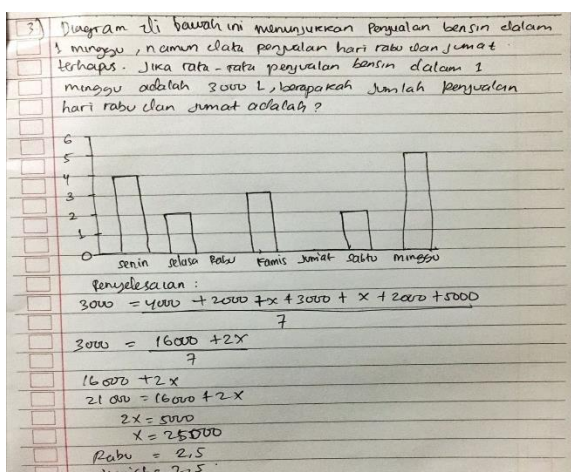 3) Diagram di bawah ini menunjukkan Penjualan bensin dalam
1 minggu, namun data penjualan hari rabu dan jumat
terhapus. Jika rata-rata penjualan bensin dalam 1
minggu adalah 3000 L, berapakah Jumlah Penjualan
hari rabu dan Jumat adalah?
6
5
4
3
2
1
0
senin selasa Rabu Kamis Jumiat Sabtu minggu
Penyelesaian :
3000 = 4000 + 2000 + x + 3000 + x + 2000 + 5000
7
3000 = 16000 + 2x
7
16000 + 2x
21000 = 16000 + 2x
2x = 5000
x = 25000
Rabu = 2,5
= 2,5